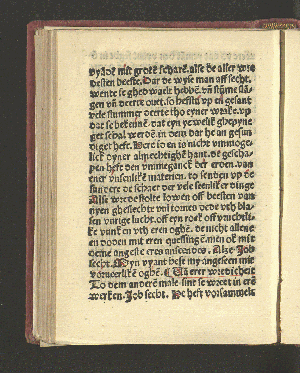 vyādē mit grotē scharē. alse de aller wre
desten deerte. Dar de wyse man aff secht.
wente se ghedwaelt hebbē. vn sūme slā-
gen vn deerte ouet. so heffstu vp en gesant
vele slummer deerte tho eyner wrake. vp
dat se bekenē. dat eyn yewelik ghepyne
get schal werdē. in dem dar he an gesun
diget heft. Were io en ia nicht vnmoge-
lick dyner almechtigkē hant. de gescha-
pen heft den vmmeganck der erden. van
ener vnsenliken materien. to senden vp de
sundere de schaer der vele seenliker dinge
Alse wredesolte lowen off beesten van
nyen gheslechte vul tornes dede vth bla-
sen vurige lucht. off eyn roek off vuchtli-
ke vunkē vth eren oghē. de nicht allene
en doden mit eren quessingē mē ok mit
deme angeste eres anseendes. Alze Job
secht. Myn vyant heft my angeseen mit
voruerliken oghē. Uā erer wredicheit
To dem andere male sint se wreet in erē
werken. Job secht. He heft vorsammelt